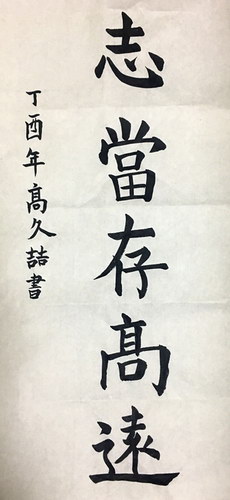 志當存高遠
丁酉年高久喆書